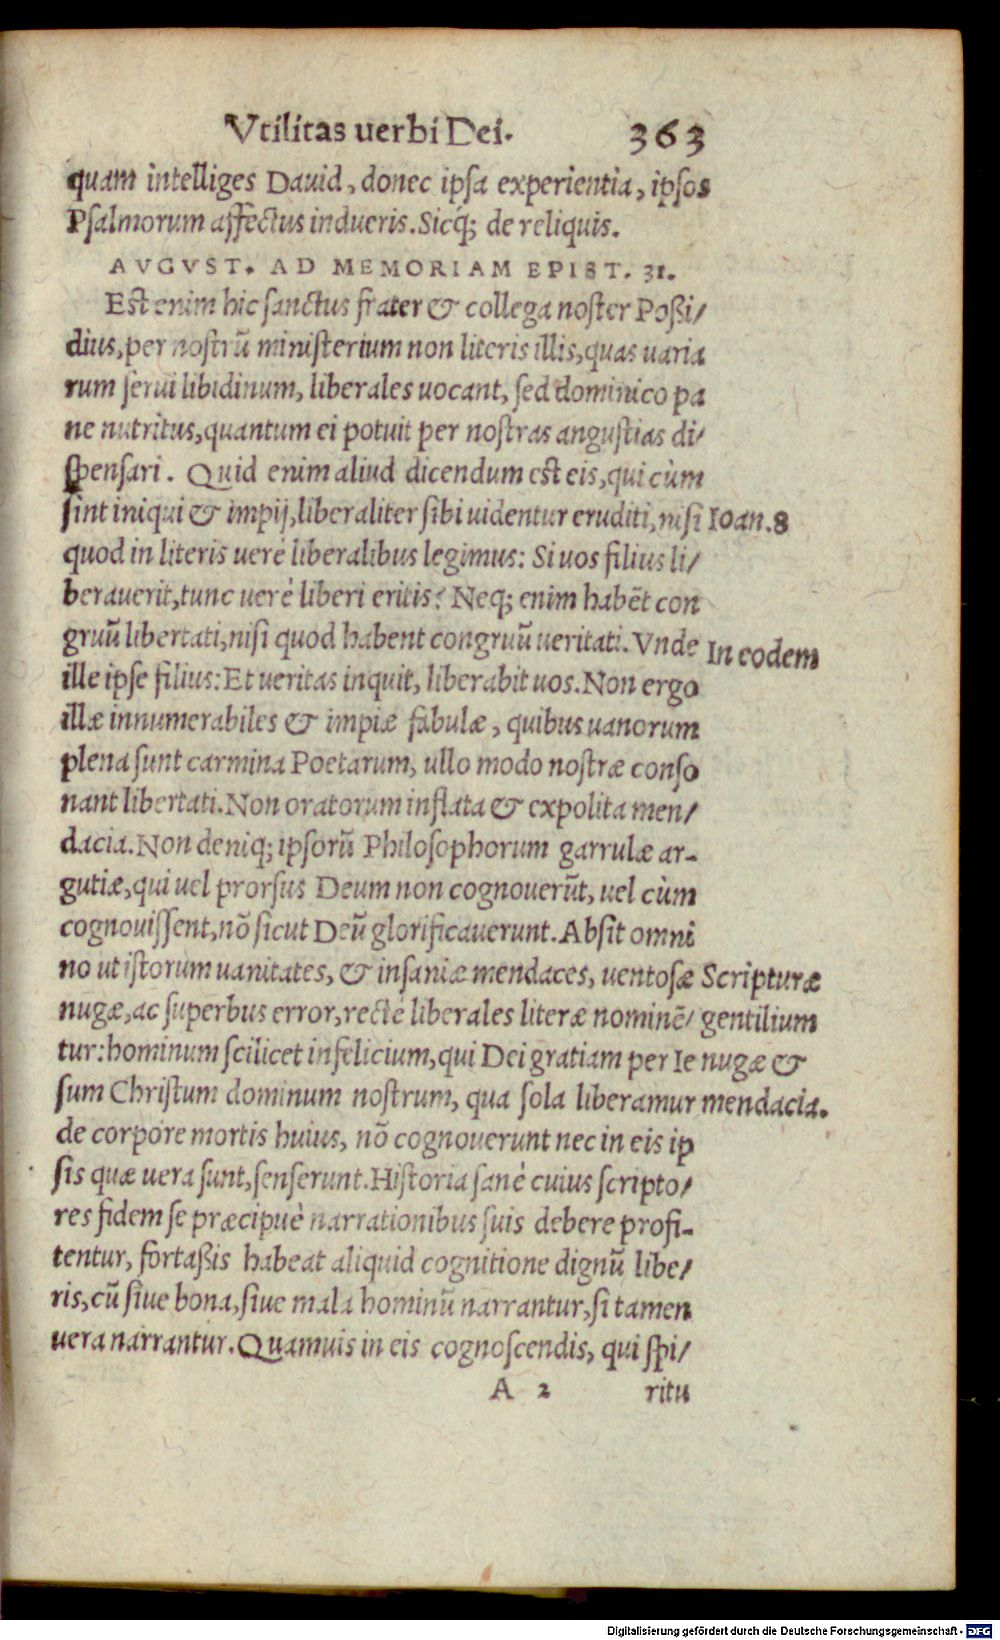 Vtilitas uerbi Dei. 363
quam intelliges Dauid, donec ipsa experientia, ipsos
Psalmorum affectus indueris. Sicq́; de reliquis.
AVGVST. AD MEMORIAM EPIST. 31.
Est enim hic sanctus frater & collega noster Poßi/
dius, per nostrū ministerium non literis illis, quas uaria
rum serui libidinum, liberales uocant, sed dominico pa
ne nutritus, quantum ei potuit per nostras angustias di/
spensari. Quid enim aliud dicendum est eis, qui cùm
sint iniqui & impij, liberaliter sibi uidentur eruditi, nisi
Ioan. 8
quod in literis uerè liberalibus legimus: Si uos filius li/
berauerit, tunc uerè liberi eritis? Neq; enim habēt con
gruū libertati, nisi quod habent congruū ueritati. Vnde
In eodem
ille ipse filius: Et ueritas inquit, liberabit uos. Non ergo
illæ innumerabiles & impiæ fabulæ, quibus uanorum
plena sunt carmina Poetarum, ullo modo nostræ conso
nant libertati. Non oratorum inflata & expolita men/
dacia. Non deniq; ipsorū Philosophorum garrulæ ar-
gutiæ, qui uel prorsus Deum non cognouerūt, uel cùm
cognouissent, nō sicut Deū glorificauerunt. Absit omni
no ut istorum uanitates, & insaniæ mendaces, uentosæ
nugæ, ac superbus error, rectè liberales literæ nominē/
tur: hominum scilicet infelicium, qui Dei gratiam per Ie
sum Christum dominum nostrum, qua sola liberamur
Scripturæ
gentilium
nugæ &
mendacia.
de corpore mortis huius, nō cognouerunt nec in eis ip
sis quæ uera sunt, senserunt. Historia sanè cuius scripto/
res fidem se præcipuè narrationibus suis debere profi-
tentur, fortaßis habeat aliquid cognitione dignū libe/
ris, cū siue bona, siue mala hominū narrantur, si tamen
uera narrantur. Quamuis in eis cognoscendis, qui spi/
A 2 ritu
Digitalisierung gefördert durch die Deutsche Forschungsgemeinschaft - DFG